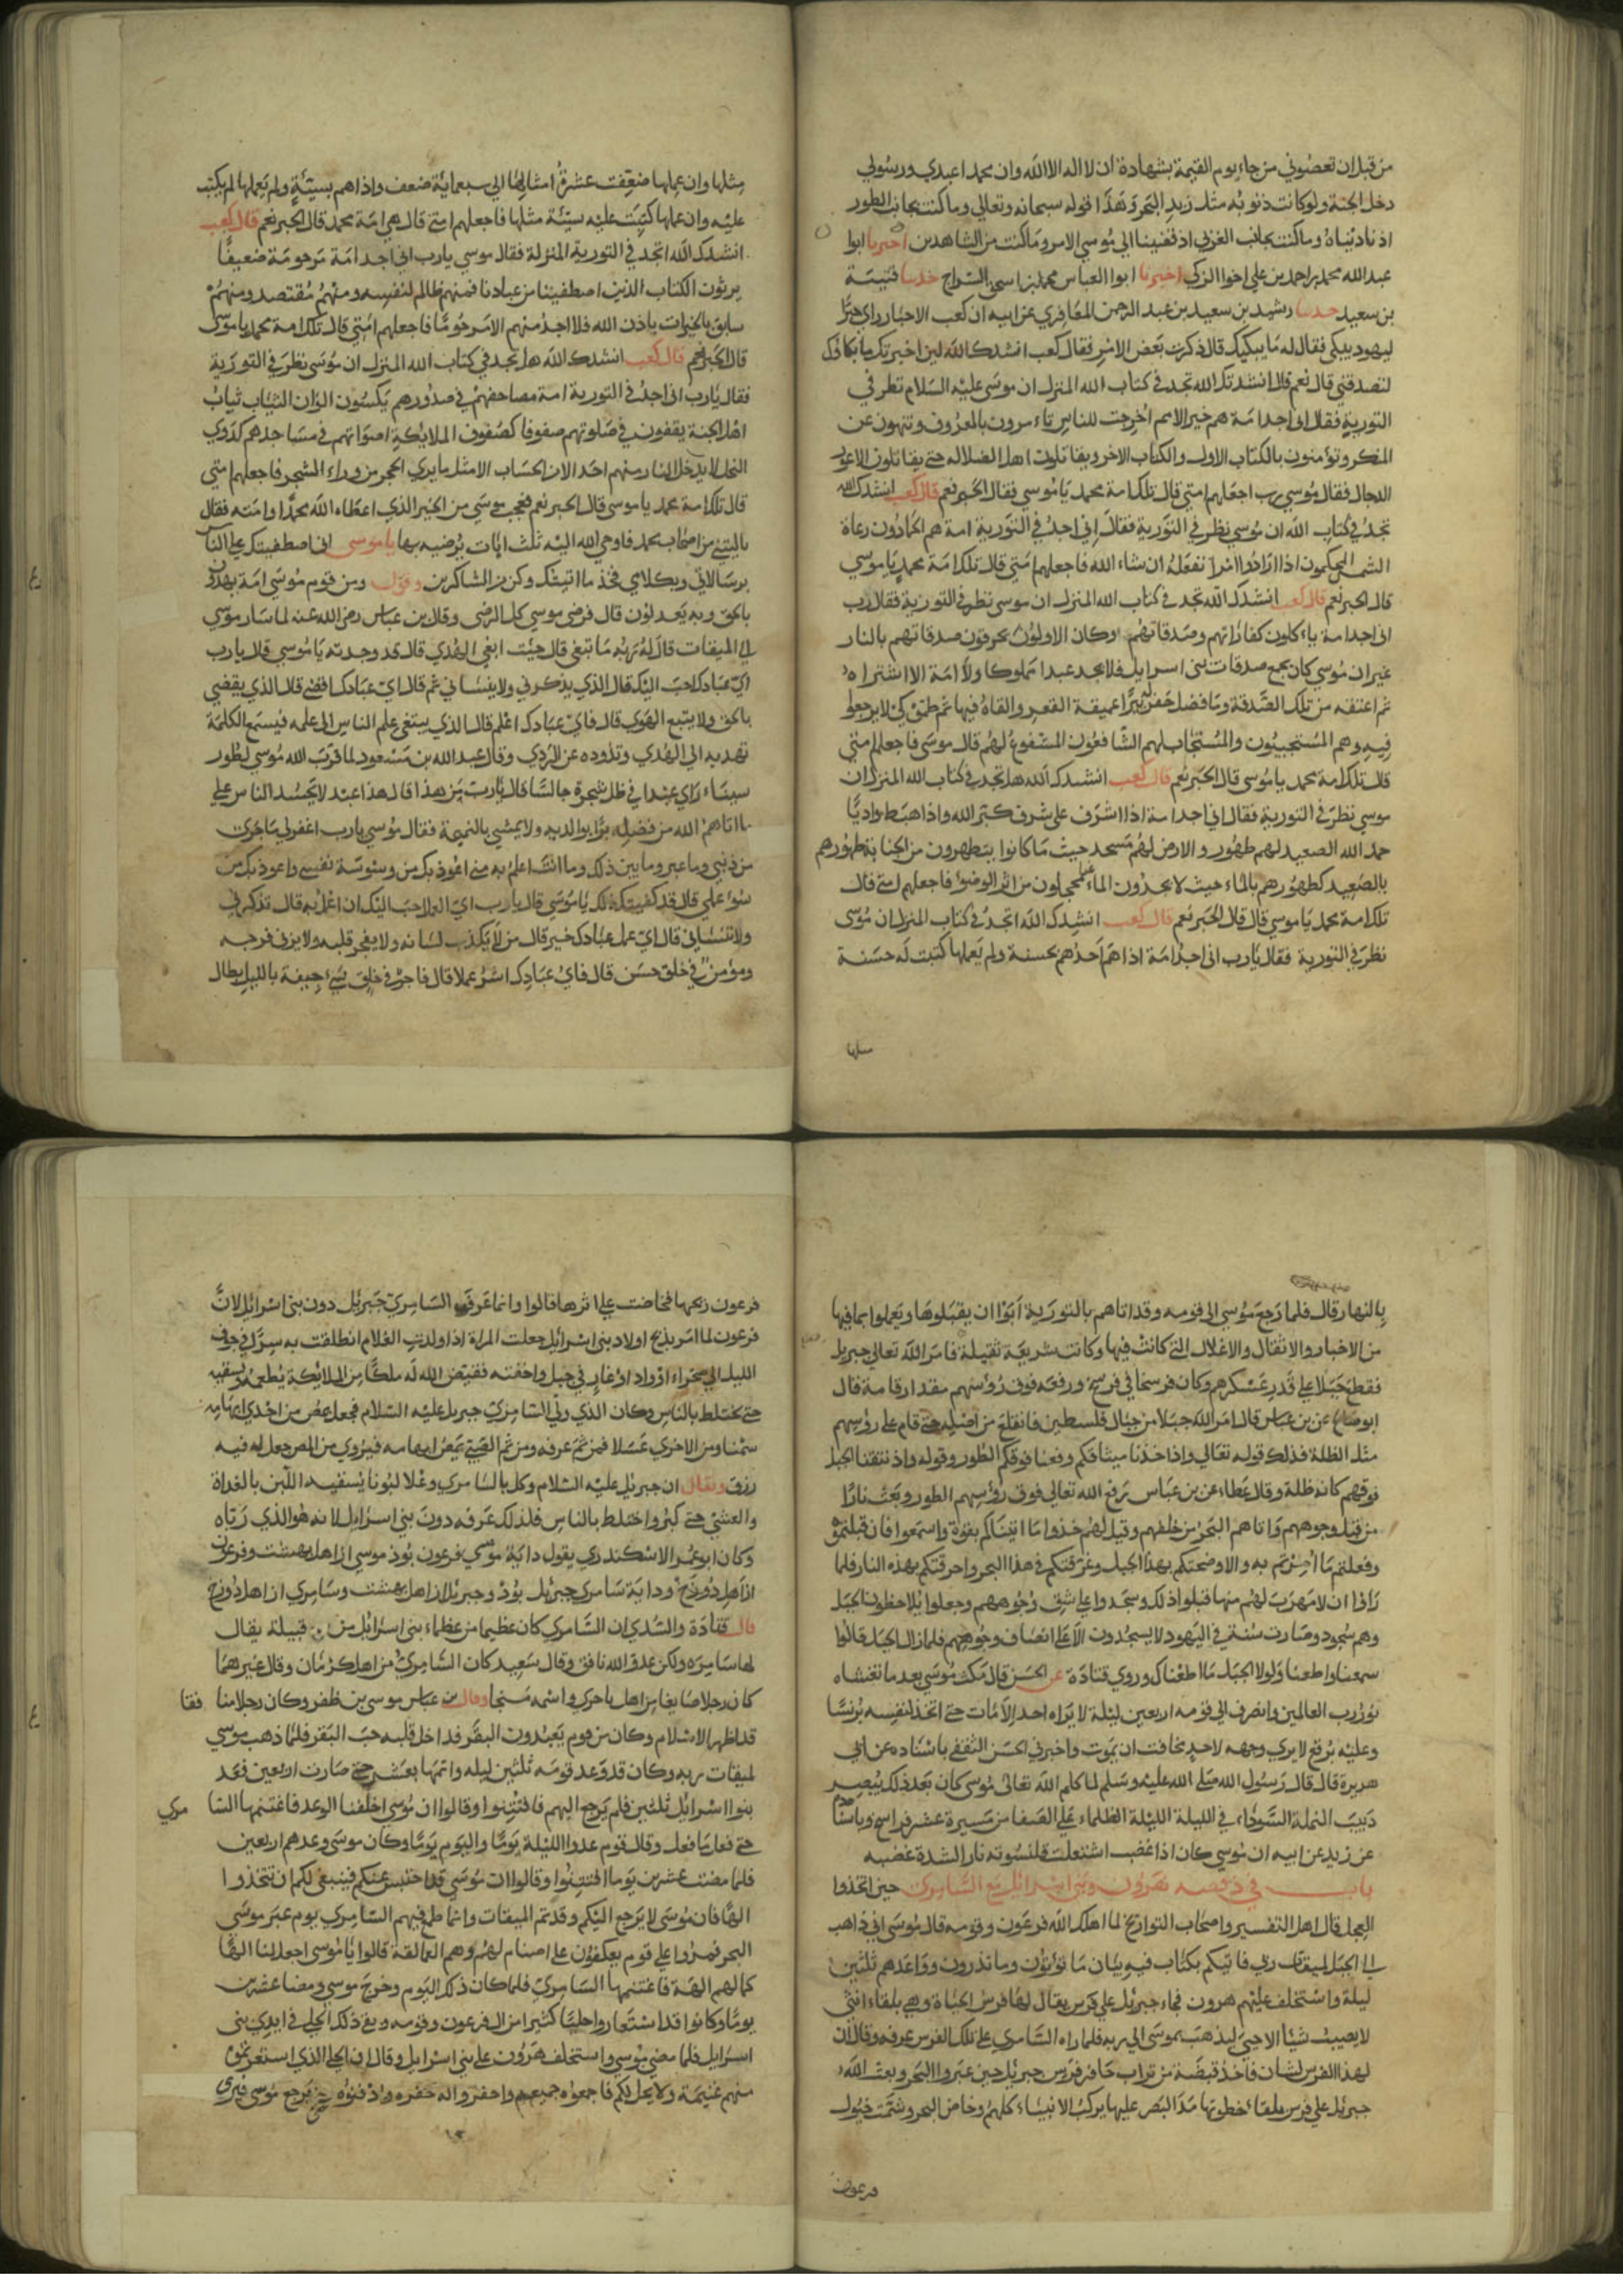 من قبل ان تعصوني من جاء يوم القيمة بشهادة ان لا اله الا الله وان محمدا عبدي ورسولي
دخل الجنة ولو كانت ذنوبه مثل زبد البحر وهذا قوله سبحانه وتعالي وما كنت بجانب الطور
اذ نادينا وما كنت بجانب الغربي اذ قضينا الي موسي الامر وما كنت من الشاهدين اخبرنا ابوا
عبد الله محمد بن احمد بن علي اخوا الزكي اخبرنا ابوا العباس محمد بن اسحق السراج حدثنا قتيبة
بن سعيد حدثنا رشيد بن سعيد بن عبد الرحمن المعافري عن ابيه ان كعب الاحبار راي حبرا
ليهود يبكي فقال له ما يبكيك قال ذكرت بعض الامر فقال كعب انشدك الله لين اخبرتك ما ابكاك
لتصدقني قال نعم قال انشدتك الله تجد في كتاب الله المنزل ان موسى عليه السلام نظر في
التورية فقال اني اجد امة هم خير الامم اخرجت للناس ياءمرون بالمعروف وتنهون عن
المنكر وتؤمنون بالكتاب الاول والكتاب الاخر ويقاتلون اهل الضلاله حتي يقاتلون الاعور
الدجال فقال موسي رب اجعلهم امتي قال تلك امة محمد يا موسي فقال الحبر نعم قال كعب انشدك الله
تجد في كتاب الله ان موسي نظر في التورية فقال اني اجد في التورية امة هم الحمادون رعاة
الشمس المحكمون اذا ارادوا امرا نفعله ان شاء الله فاجعلهم امتي قال تلك امة محمد يا موسي
قال الحبر نعم قال كعب انشدك الله تجد في كتاب الله المنزل ان موسى نظر في التورية فقال رب
اني اجد امة ياءكلون كفاراتهم وصدقاتهم وكان الاولون يحرقون صدقاتهم بالنار
غير ان موسي كان يجمع صدقات بني اسرايل فلا يجد عبدا مملوكا ولا امة الا اشتراه
ثم اعتقه من تلك الصدقة وما فضل حفر بئرا عميقة القعر والقاه فيها ثم طمي كي لا يرجعوا
فيه وهم المستجيبون والمستجاب لهم الشافعون المشفوع لهم قال موسى فاجعلهم امتي
قال تلك امة محمد يا موسى قال الحبر نعم قال كعب انشدك الله هل تجد في كتاب الله المنزل ان
موسي نظر في التورية فقال اني اجد امة اذا اشرف على شرف كبر الله واذا هبط واديا
حمد الله الصعيد لهم طهور والارض لهم مسجد حيث ما كانوا يتطهرون من الجنابة طهورهم
بالصعيد كطهورهم بالماء حيث لا يجدون الماء محجلون من اثر الوضوء فاجعلهم امتي قال
تلك امة محمد يا موسي قال قال الحبر نعم قال كعب انشدك الله اتجد في كتاب المنزل ان موسى
نظر في التورية فقال يا رب اني اجد امة اذا هم احدهم بحسنة ولم يعملها كتبت له حسنة
مثلها وان عملها ضعفت عشرة امثالها الي سبعماية ضعف واذا هم بسيئة ولم يعملها لم يكتب
عليه وان عملها كتبت عليه سيئة مثلها فاجعلهم امتي قال هي امة محمد قال الحبر نعم قال كعب
انشدك الله اتجد في التورية المنزلة فقال موسي يا رب اني اجد امة مرحومة ضعيفا
يرثون الكتاب الذين اصطفينا من عبادنا فمنهم ظالم لنفسه ومنهم مقتصد ومنهم
سابق بالخيرات باذن الله فلا اجد منهم الا مرحوما فاجعلهم امتي قال تلك امة محمد يا موسى
قال الحبر نعم قال كعب انشدك الله هل تجد في كتاب الله المنزل ان موسى نظر في التورية
فقال يا رب اني اجد في التورية امة مصاحفهم في صدورهم يكسون الوان الثياب ثياب
اهل الجنة يقفون في صلوتهم صفوفا كصفوف الملائكة اصواتهم في مساجدهم كدوي
النحل لا يدخل النار منهم احد الا من الحساب الا مثل ما يري الحجر من وراء الشجر فاجعلهم امتي
قال تلك امة محمد يا موسى قال الحبر نعم فعجب موسي من الخير الذي اعطاه الله محمدا وامته فقال
يا ليتني من اصحاب محمد فاوحي الله اليه ثلث ايات يرضيه بها يا موسى اني اصطفيتك علي الناس
برسالاتي وبكلامي فخذ ما اتيتك وكن من الشاكرين وقوله ومن قوم موسي امة يهدون
بالحق وبه يعدلون قال فرضي موسي كل الرضي وقال بن عباس رضي الله عنه لما سار موسي
الي الميقات قال له ربه ما تبغي قال جئت ابغي الهدي قال قد وجدته يا موسي قال يا رب
اي عبادك احب اليك قال الذي يذكرني ولا ينساني ثم قال اي عبادك اقضى قال الذي يقضي
بالحق ولا يتبع الهوي قال فاي عبادك اعلم قال الذي يبتغي علم الناس الى علمه فيسمع الكلمة
تهديه الي الهدي وتذوده عن الردي وقال عبد الله بن مسعود لما قرب الله موسي لطور
سيناء راي عبدا في ظل شجرة جالسا قال يا رب من هذا قال هذا عبد لا يحسد الناس علي
ما اتاهم الله من فضله برا بوالديه ولا يمشي بالنميمة فقال موسي يا رب اغفر لي ما جرى
من ذنبي وما عبر وما بين ذلك وما انت اعلم به مني اعوذ بك من وسوسة نفسي واعوذ بك من
سوء عملي قال قد كفيتك ذلك يا موسي قال يا رب اي العمل احب اليك ان اعمل به قال تذكرني
ولا تنساني قال اي عمل عبادك خير قال من لا يكذب لسانه ولا يفجر قلبه ولا يزني فرجه
ومؤمن في خلق حسن قال فاي عبادك اشر عملا قال فاجر في خلق سيء جيفة بالليل بطال
بالنهار وقال فلما رجع موسي الي قومه وقد اتاهم بالتورية ابوا ان يقبلوها ويعملوا بما فيها
من الاخبار والاثقال والاغلال التي كانت فيها وكانت شريعة ثقيلة فامر الله تعالي جبريل
فقطع جبلا علي قدر عسكرهم وكان فرسخا في فرسخ ورفعه فوق رؤسهم مقدار قامة قال
ابو صالح عن بن عباس قال امر الله جبلا من جبال فلسطين فانقلع من اصله حتى قام على رؤسهم
مثل الظلة فذلك قوله تعالي واذ اخذنا ميثاقكم ورفعنا فوقكم الطور وقوله واذ نتقنا الجبل
فوقهم كانه ظلة وقال عطاء عن بن عباس رفع الله تعالي فوق رؤسهم الطور وبعث نارا
من قبل وجوههم واتاهم البحر من خلفهم وقيل لهم خذوا ما اتيناكم بقوة واسمعوا فان قبلتموه
وفعلتم ما امرتم به والا رضحتكم بهذا الجبل وغرقتكم في هذا البحر واحرقتكم بهذه النار فلما
راوا ان لا مهرب لهم منها قبلوا ذلك وسجدوا علي شق وجوههم وجعلوا يلاحظون الجبل
وهم سجود وصارت سنة في اليهود لا يسجدون الا على انصاف وجوههم فلما زال الجبل قالوا
سمعنا واطعنا ولولا الجبل ما اطعناك وروي قتادة عن الحسن قال مكث موسي بعد ما تغشاه
نور رب العالمين وانصرف الي قومه اربعين ليلة لا يراه احد الا مات حتى اتخذ لنفسه برنسا
وعليه برقع لا يري وجهه لاحد مخافة ان يموت واخبرني الحسن الثقفي باسناده عن ابي
هريرة قال قال رسول الله صلي الله عليه وسلم لما كلم الله تعالى موسى كان بعد ذلك يبصر
دبيب النملة السوداء في الليلة الليلة الظلماء علي الصفا من مسيرة عشر فراسخ وباسناد
عن زيد عن ابيه ان موسي كان اذا غضب اشتعلت قلنسوته نارا لشدة غضبه
باب في ذ قصه هرون وبني اسرائيل مع السامري حين اتخذوا
العجل قال اهل التفسير واصحاب التواريخ لما اهلك الله فرعون وقومه قال موسى اني ذاهب
الي الجبل لميقات ربي فاتيكم بكتاب فيه بيان ما تؤتون وما تذرون وواعدهم ثلثين
ليلة واستخلف عليهم هرون فجاء جبرئيل علي فرس يقال لها فرس الحياة وهي بلقاء انثى
لا يصيب شيئا الا حيي ليذهب بموسى الي ربه فلما راه السامري علي تلك الفرس عرفه وقال ان
لهذا الفرس لشان فاخذ قبضة من تراب حافر فرس جبرئيل حين عبروا البحر وبعث الله
جبرئيل علي فرس بلقاء خطوتها مد البصر عليها يركب الانبياء كلهم وخاض البحر وشمت خيول
فرعون
فرعون ريحها فخاضت علي اثرها قالوا وانما عرف السامري جبرئيل دون بني اسرائيل لان
فرعون لما امر بذبح اولاد بني اسرائيل جعلت المراة اذا ولدت الغلام انطلقت به سرا في جوف
الليل الي صحراء او واد او غار في جبل واخفته فقيض الله له ملكا من الملائكة يطعمه ويسقيه
حتى يختلط بالناس وكان الذي ولي السامري جبريل عليه السلام فجعل يمص من احدي ابهاميه
سمنا ومن الاخري عسلا فمن ثم عرفه ومن ثم الصبي يمص ابهامه فيروي من المص جعل له فيه
رزق ويقال ان جبريل عليه السلام وكل بالسامري وعلا لبونا يسقيه اللبن بالغداة
والعشي حتى كبر واختلط بالناس فلذلك عرفه دون بني اسرائيل لانه هو الذي رباه
وكان ابو عمر الاسكندري يقول دابة موسي فرعون بود موسى از اهل بهشت وفرعون
از اهل دوزخ ودابة سامري جبرئيل بود وجبرئيل از اهل بهشت وسامري از اهل دوزخ
قال قتادة والسدي ان السامري كان عظيما من عظماء بني اسرائيل من قبيلة يقال
لها سامره ولكن عدو الله نافق وقال سعيد كان السامري من اهل كرمان وقال غيرهما
كان رجلا صايغا من اهل باجرمي واسمه منجا وقال بن عباس موسي بن ظفر وكان رجلا منافقا
قد اظهر الاسلام وكان من قوم يعبدون البقر فدا خل قلبه حب البقر فلما ذهب موسي
لميقات ربه وكان قد وعد قومه ثلثين ليله واتمها بعشر حتى صارت اربعين فعد
بنوا اسرائيل ثلثين فلم يرجع اليهم فافتتنوا وقالوا ان موسي اخلفنا الوعد فاغتنمها السامري
حتى فعل ما فعل وقال قوم عدوا الليلة يوما واليوم يوما وكان موسى وعدهم اربعين
فلما مضت عشرين يوما افتتنوا وقالوا ان موسي قد احتبس عنكم فينبغي لكم ان تتخذوا
الها فان موسى لا يرجع اليكم وقد تم الميقات وانما طمع فيهم السامري يوم عبر موسى
البحر فمروا علي قوم يعكفون علي اصنام لهم وهم العمالقة قالوا يا موسى اجعل لنا الها
كما لهم الهة فاغتنمها السامري فلما كان ذلك اليوم وخرج موسي ومضا عشرين
يوما وكانوا قد استعاروا حليا كثيرا من ال فرعون وقومه وبقي ذلك الحلي في ايدي بني
اسرايل فلما مضي موسي واستخلف هرون علي بني اسرايل وقال ان الحلي الذي استعرتموه
منهم غنيمة ولا يحل لكم فاجمعوه جميعهم واحفروا له حفره وادفنوه حتى يرجع موسى فيرى